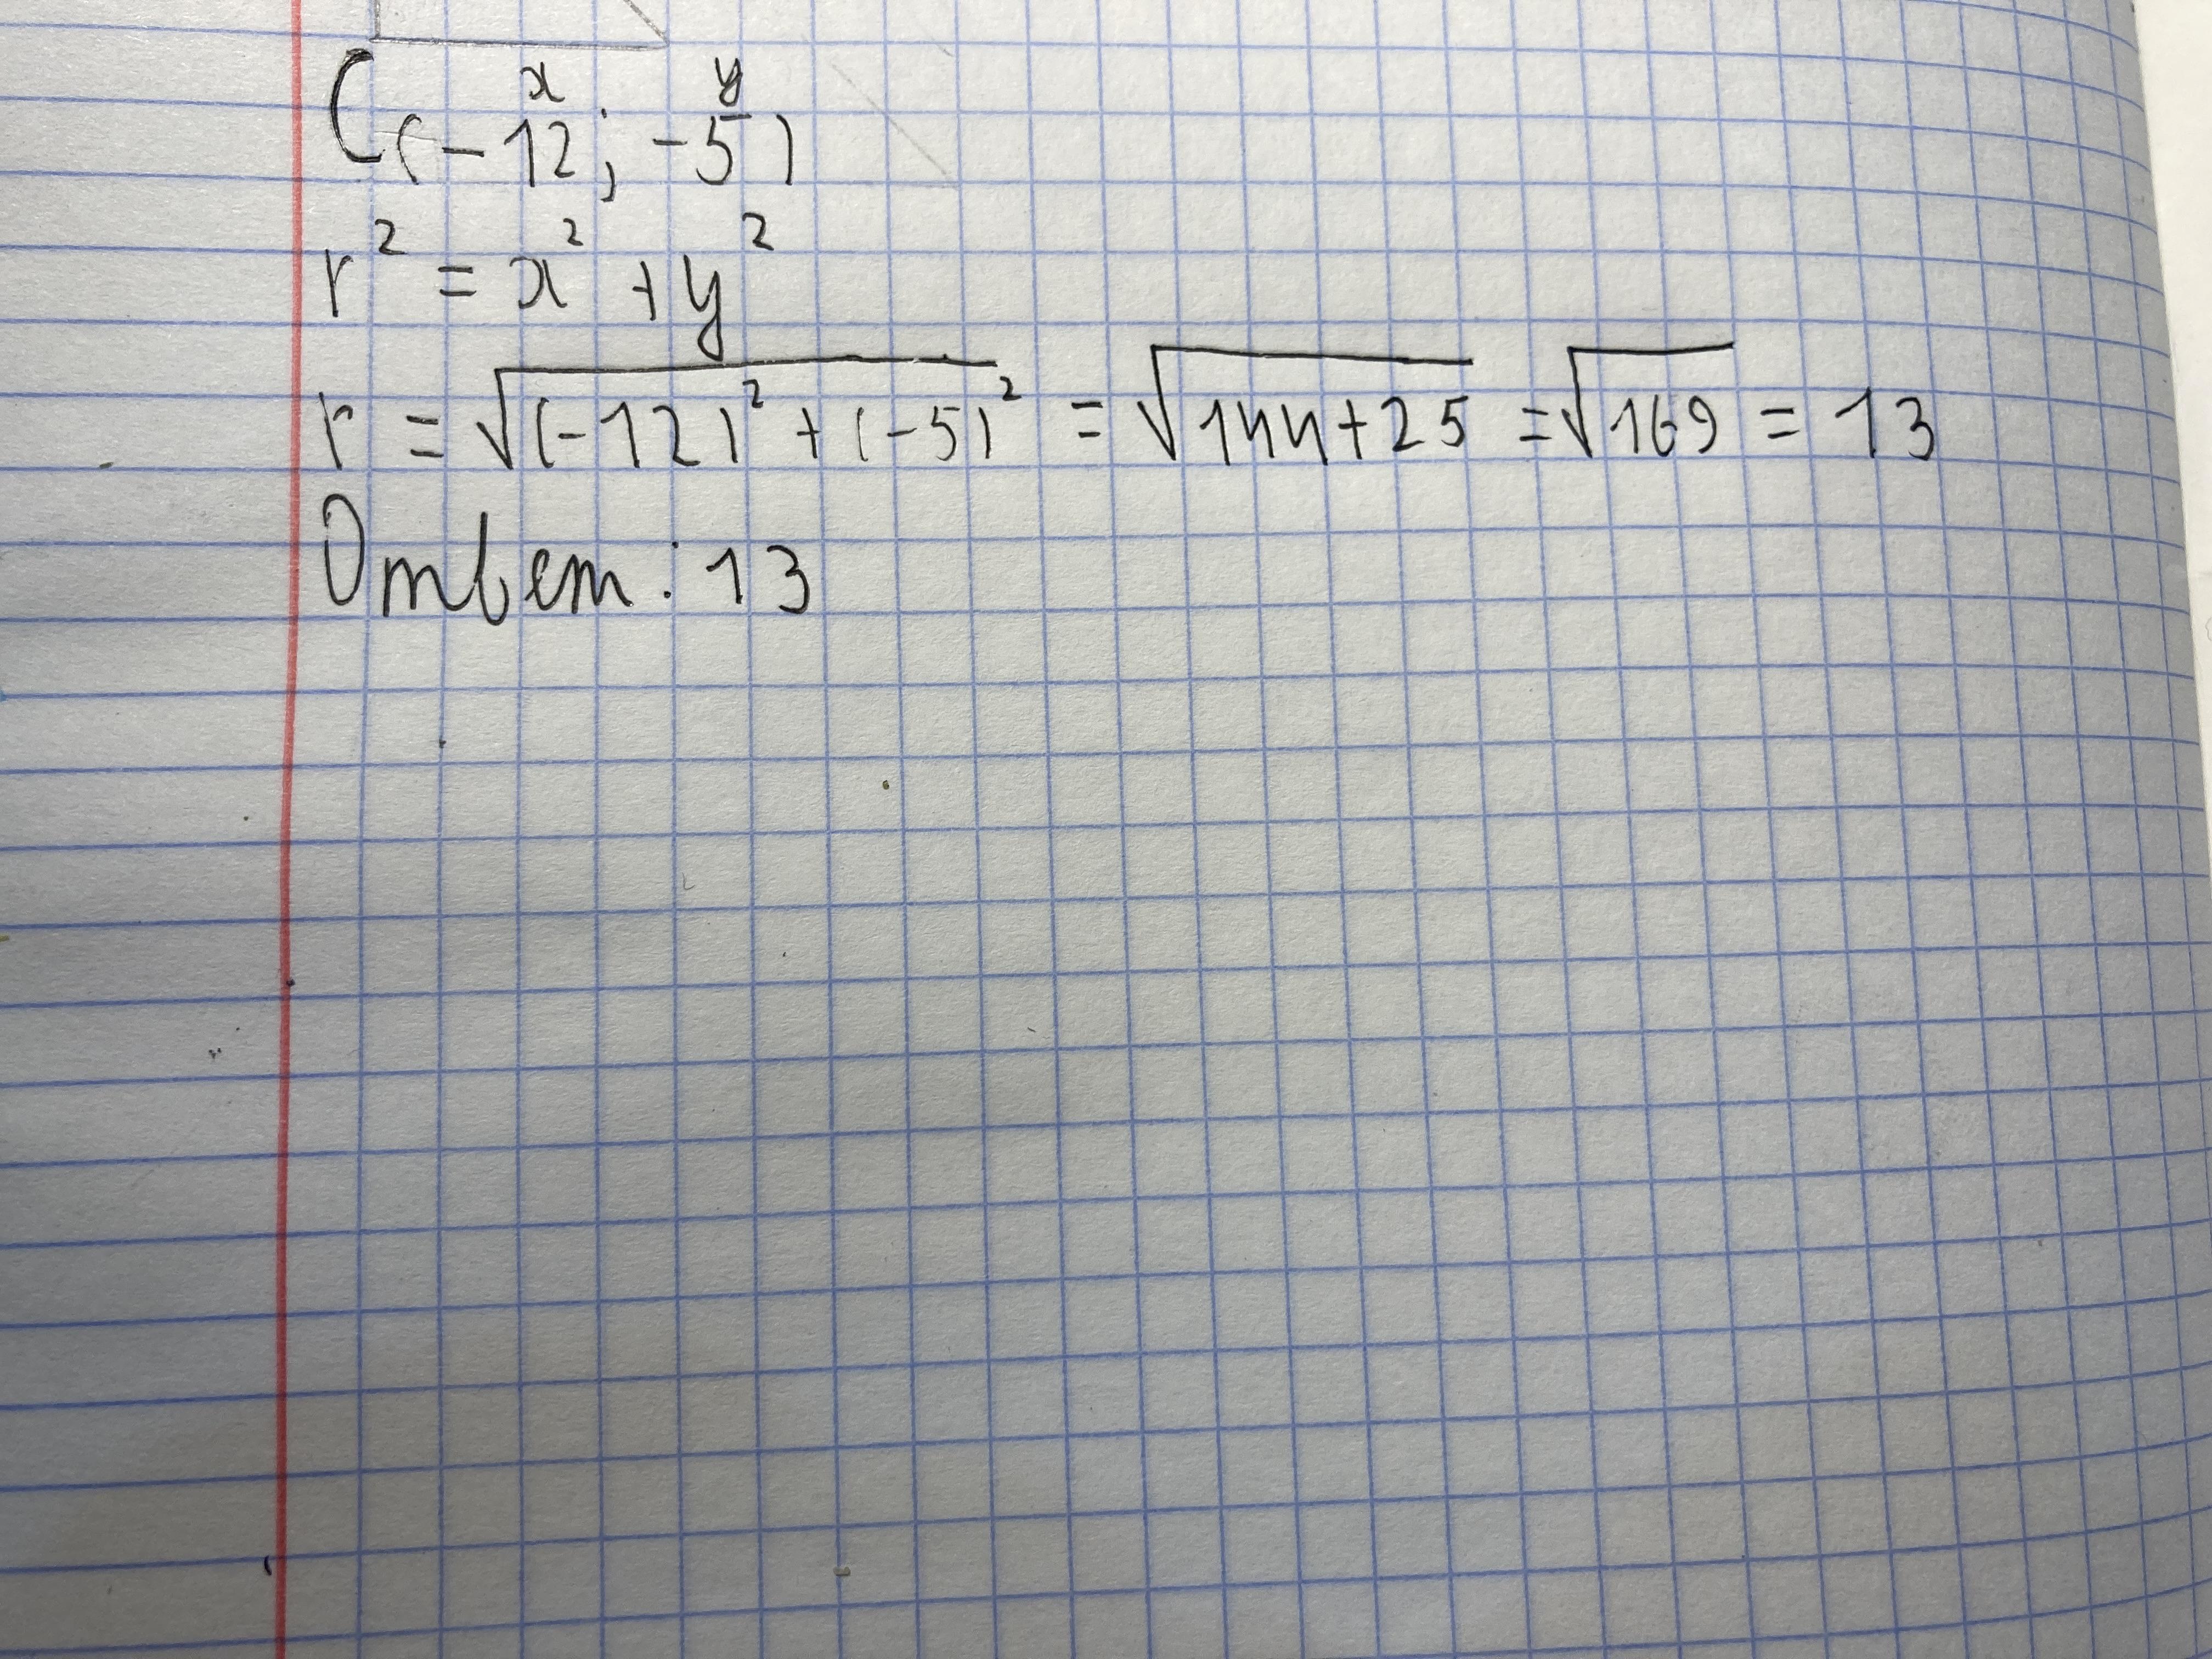 x y
C(-12; -5)
r² = x² + y²
r = √((-12)² + (-5)²) = √(144+25) = √169 = 13
Ответ: 13